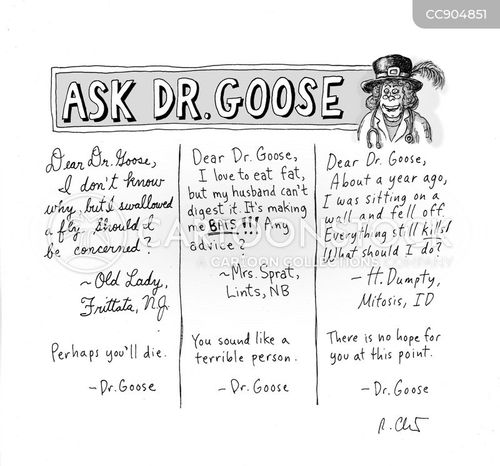 CC904851
ASK DR. GOOSE
Dear Dr. Goose,
I don't know
why, but I swallowed
a fly. Should I
be concerned?
~ Old Lady,
Frittata, NJ.
Perhaps you'll die.
- Dr. Goose
Dear Dr. Goose,
I love to eat fat,
but my husband can't
digest it. It's making
me BATS!!! Any
advice?
~ Mrs. Sprat,
Lints, NB
You sound like a
terrible person.
- Dr. Goose
Dear Dr. Goose,
About a year ago,
I was sitting on a
wall and fell off.
Everything still kills!
What should I do?
- H. Dumpty,
Mitosis, ID
There is no hope for
you at this point.
- Dr. Goose
R. Chst
CARTOONSTOCK
CARTOON COLLECTIONS